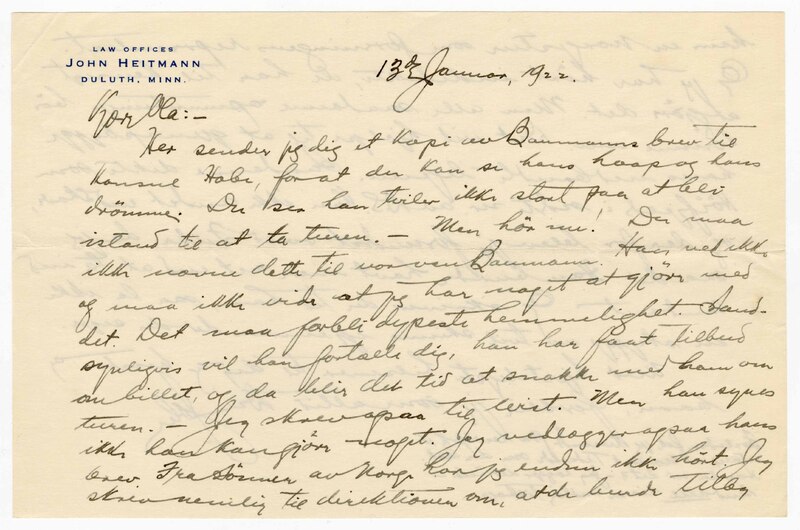 LAW OFFICES
JOHN HEITMANN
DULUTH, MINN.
13de Januar, 1922.
Kjære Ola:—
Her sender jeg dig et Kopi av Baumanns brev til
Konsul Hobe, for at du kan se hans haap og hans
drömme. Du ser han tviler ikke stort paa at bli
istand til at ta turen. — Men hör nu! Du maa
ikke nævne dette til vor ven Baumann. Han ved ikke
og maa ikke vide at jeg har noget at gjöre med
det. Det maa forbli dypeste hemmelighet. Sand-
synligvis vil han fortælle dig, han har faat tilbud
om billet, og da blir det tid at snakke med ham om
turen. — Jeg skrev ogsaa til Leist. Men han synes
ikke han kan gjöre noget. Jeg vedlægger ogsaa hans
brev. Fra Sönner av Norge har jeg endnu ikke hört. Jeg
skrev nemlig til direktionen om, at de burde tilby